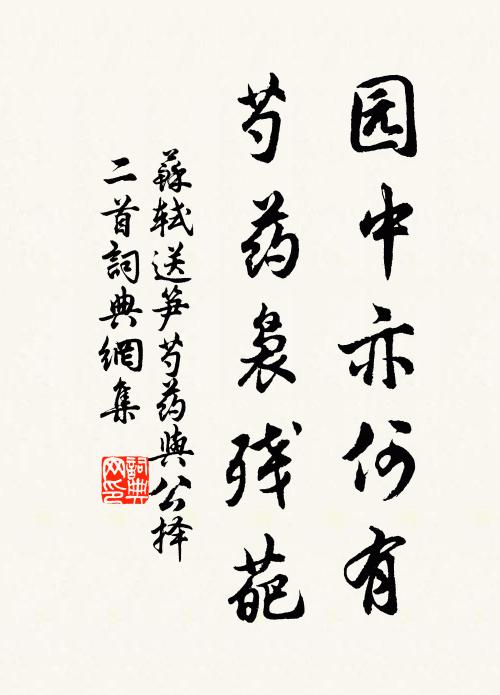 园中亦何有
芍药袅残葩
蘇轼送笋芍药與公择
二首詞典網集
詞典
网印